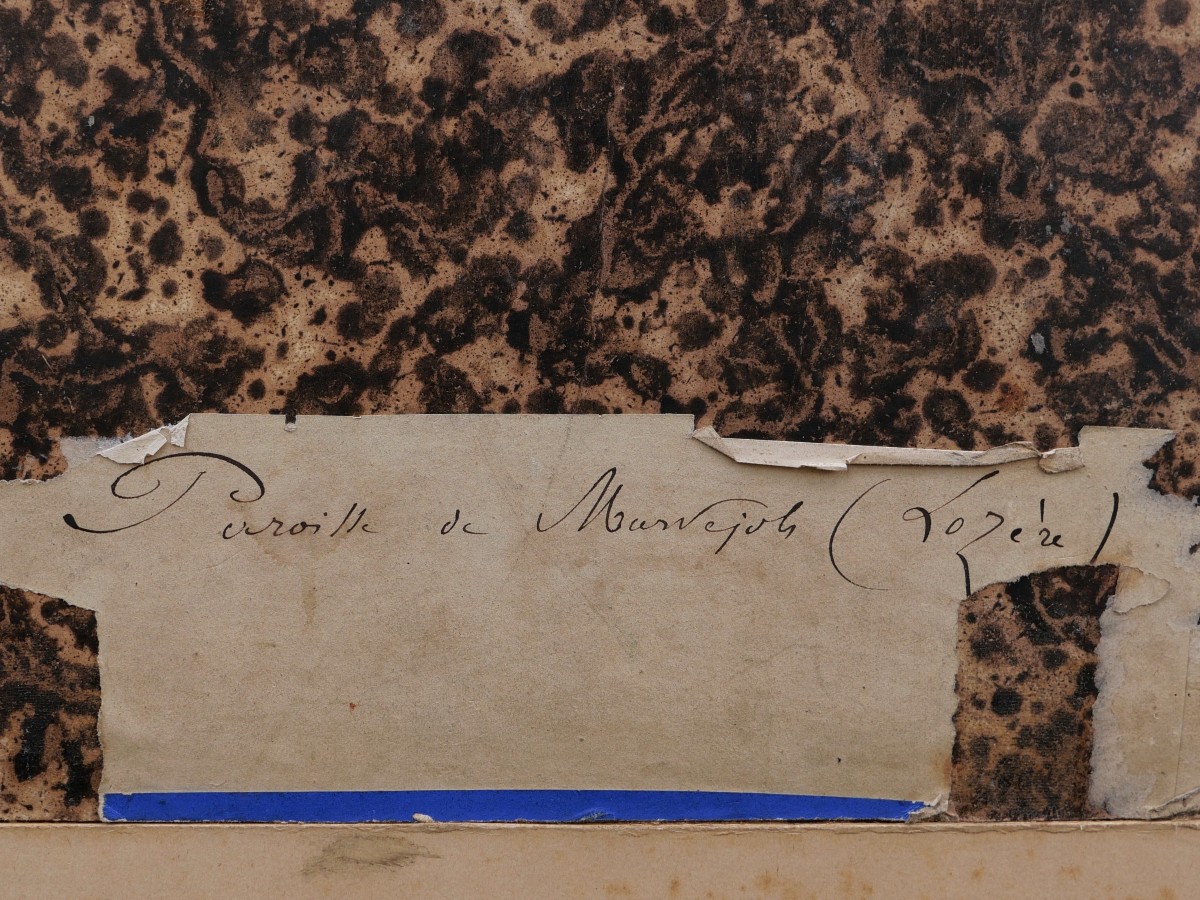 Paroisse de Marvejols (Lozère)